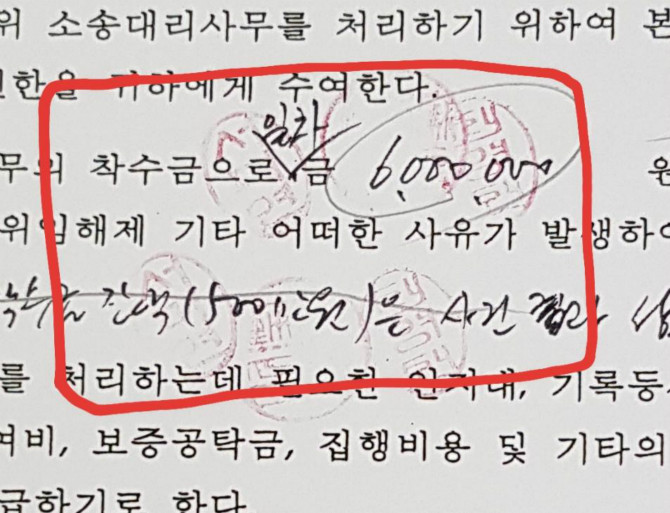 위 소송대리사무를 처리하기 위하여 본
권한을 귀하에게 수여한다.
일차
무의 착수금으로 금 6,000,000 원
위임해제 기타 어떠한 사유가 발생하여
착수금 잔액 (500만원)은 사건 결과
를 처리하는데 필요한 인지대, 기록등
여비, 보증공탁금, 집행비용 및 기타의
급하기로 한다